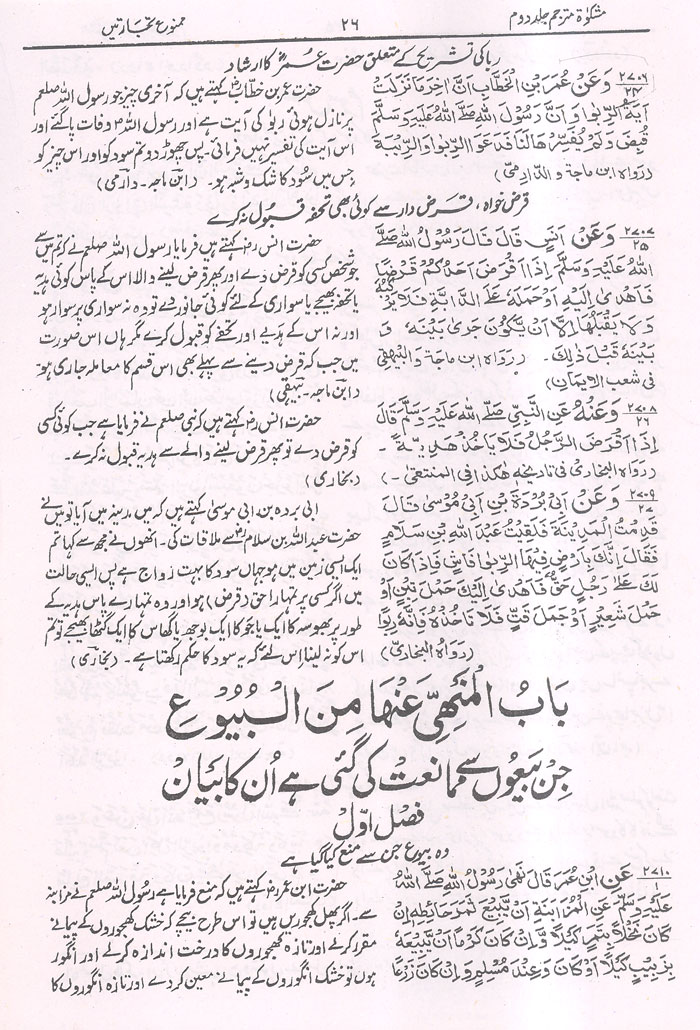 مشکوٰۃ مترجم جلد دوم
۲۶
ممنوع تجارتیں
ربا کی تشریح کے متعلق حضرت عمرؓ کا ارشاد
۲۷۰۶
۲۴
وَعَنْ عُمَرَ بْنِ الْخَطَّابِ اَنَّ اٰخِرَ مَا نَزَلَتْ
اٰیَةُ الرِّبٰوا وَاَنَّ رَسُوْلَ اللهِ صَلَّی اللهُ عَلَیْهِ وَسَلَّمَ
قُبِضَ وَلَمْ یُفَسِّرْهَا لَنَا فَدَعَوُ الرِّبٰوا وَالرِّیْبَةَ
(رَوَاهُ ابن ماجة و الدّارمیّ)
حضرت عمر بن خطابؓ کہتے ہیں کہ آخری چیز جو رسول اللہ صلعم
پر نازل ہوئی ربوٰ کی آیت ہے اور رسول اللہؐ وفات پا گئے اور
اس آیت کی تفسیر نہیں فرمائی۔ پس چھوڑ دو تم سود کو اور اس چیز کو
جس میں سُود کا شک و شبہ ہو۔ (ابن ماجہ۔ دارمی)
قرض خواہ، قرض دار سے کوئی بھی تحفہ قبول نہ کرے
۲۷۰۷
۲۵
وَعَنْ اَنَسٍ قَالَ قَالَ رَسُوْلُ اللهِ صَلَّی
اللهُ عَلَیْهِ وَسَلَّمَ اِذَا اَقْرَضَ اَحَدُکُمْ قَرْضًا
فَاَهْدٰی اِلَیْهِ اَوْ حَمَلَهٗ عَلَی الدَّابَّةِ فَلَا یَرْکَبْهُ
وَلَا یَقْبَلْهَا اِلَّا اَنْ یَّکُوْنَ جَرٰی بَیْنَهٗ وَ
بَیْنَهٗ قَبْلَ ذٰلِكَ۔ (رواه ابن ماجة و البیهقی
فی شعب الایمان)
حضرت انسؓ کہتے ہیں فرمایا رسول اللہ صلعم نے کہ تم میں سے
جو شخص کسی کو قرض دے اور پھر قرض لینے والا اس کے پاس کوئی ہدیہ
یا تحفہ بھیجے یا سواری کے لئے کوئی جانور دے تو وہ نہ سواری پر سوار ہو
اور نہ اس کے ہدیے اور تحفے کو قبول کرے مگر ہاں اس صورت
میں جب کہ قرض دینے سے پہلے بھی اس قسم کا معاملہ جاری ہو۔
(ابن ماجہ۔ بیہقی)
۲۷۰۸
۲۶
وَعَنْهُ عَنِ النَّبِیِّ صَلَّی اللهُ عَلَیْهِ وَسَلَّمَ قَالَ
اِذَا اَقْرَضَ الرَّجُلُ فَلَا یَاْخُذْ هَدِیَّةً۔
(رواه البخاری فی تاریخه هکذا فی المنتقی۔)
حضرت انسؓ کہتے ہیں کہ نبی صلعم نے فرمایا ہے جب کوئی کسی
کو قرض دے تو پھر قرض لینے والے سے ہدیہ قبول نہ کرے۔
(بخاری)
۲۷۰۹
۲۷
وَعَنْ اَبِیْ بُرْدَةَ بْنِ اَبِیْ مُوْسٰی قَالَ
قَدِمْتُ الْمَدِیْنَةَ فَلَقِیْتُ عَبْدَ اللهِ بْنَ سَلَامٍ
فَقَالَ اِنَّكَ بِاَرْضٍ فِیْهَا الرِّبٰوا فَاشٍ فَاِذَا کَانَ
لَكَ عَلٰی رَجُلٍ حَقٌّ فَاَهْدٰی اِلَیْكَ حِمْلَ تِبْنٍ اَوْ
حِمْلَ شَعِیْرٍ اَوْ حَبْلَ قَتٍّ فَلَا تَاخُذْهُ فَاِنَّهٗ رِبًوا
(رَوَاهُ الْبُخَارِیّ)
ابی بردہ بن ابی موسیٰ کہتے ہیں کہ میں مدینہ میں آیا تو میں نے
حضرت عبداللہ بن سلامؓ سے ملاقات کی۔ انھوں نے مجھ سے کہا تم
ایک ایسی زمین میں ہو جہاں سود کا بہت رواج ہے پس ایسی حالت
میں اگر کسی پر تمہارا حق (قرض) ہو اور وہ تمہارے پاس ہدیہ کے
طور پر بھوسہ کا ایک یا جَو کا ایک بوجھ یا گھاس کا ایک گٹھا بھیجے تو تم
اس کو نہ لینا اس لئے کہ یہ سود کا حکم رکھتا ہے۔ (بخاری)
بَابُ الْمَنْهِیِّ عَنْهَا مِنَ الْبُیُوْعِ
جن بیعوں سے ممانعت کی گئی ہے اُن کا بیان
فصل اوّل
وہ بیوع جن سے منع کیا گیا ہے
۲۷۱۰
۱
عَنِ ابْنِ عُمَرَ قَالَ نَهٰی رَسُوْلُ اللهِ صَلَّی اللهُ
عَلَیْهِ وَسَلَّمَ عَنِ الْمُزَابَنَةِ اَنْ یَّبِیْعَ ثَمَرَ حَائِطِهٖ اِنْ
کَانَ نَخْلًا بِتَمْرٍ کَیْلًا وَّاِنْ کَانَ کَرْمًا اَنْ یَّبِیْعَهٗ
بِزَبِیْبٍ کَیْلًا اَوْ کَانَ وَعِنْدَ مُسْلِمٍ وَاِنْ کَانَ زَرْعًا
حضرت ابن عمرؓ کہتے ہیں کہ منع فرمایا ہے رسول اللہ صلعم نے مزابنہ
سے۔ اگر پھل کھجوریں ہیں تو اس طرح بیچے کہ خشک کھجوروں کے پیمانے
مقرر کر لے اور تازہ کھجوروں کا درخت اندازہ کرلے اور انگور
ہوں تو خشک انگوروں کے پیمانے معین کر دے اور تازہ انگوروں کا